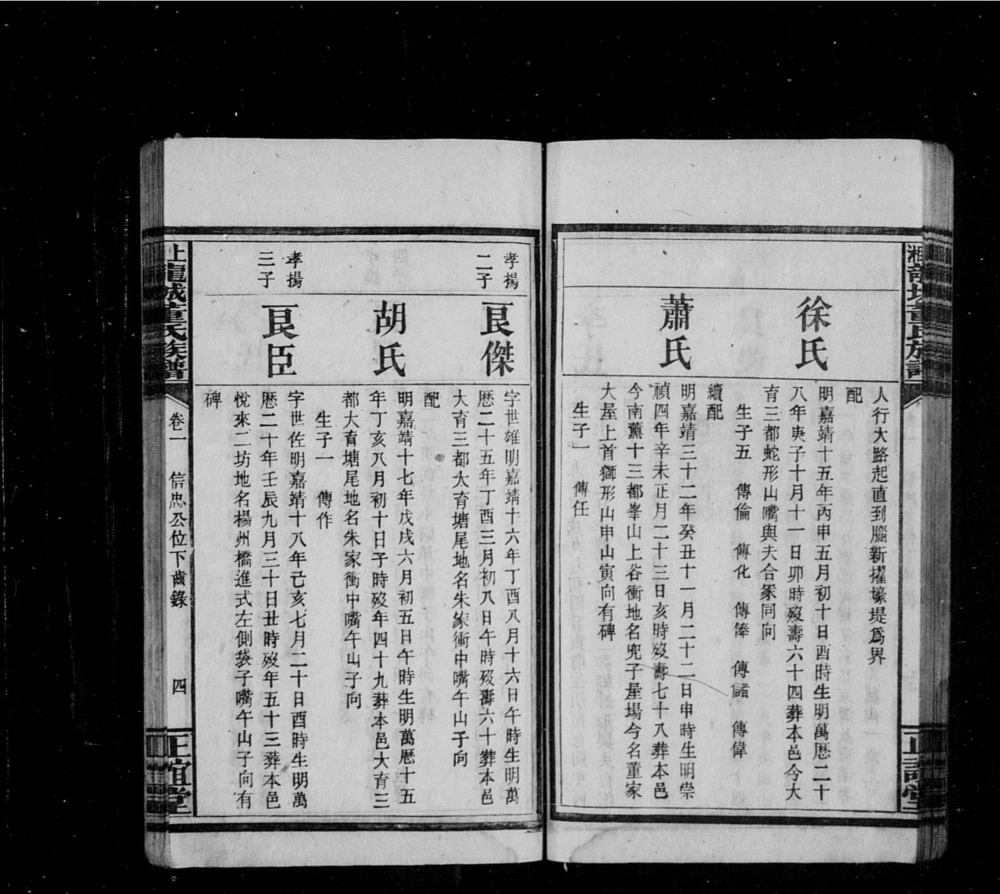 人行大路起直到腦新擢壕堤爲界
配
徐氏
明嘉靖十五年丙申五月初十日酉時生明萬厯二十
八年庚子十月十一日卯時歿壽六十四葬本邑今大
育三都蛇形山嘴與夫合冢同向
生子五 傳倫 傳化 傳俸 傳儲 傳偉
續配
蕭氏
明嘉靖三十二年癸丑十一月二十二日申時生明崇
禎四年辛未正月二十三日亥時歿壽七十八葬本邑
今南薰十三都峯山上谷衝地名兜子壘場今名董家
大屋上首獅形山申山寅向有碑
生子一 傳任
孝揚
二子
良傑
字世雄明嘉靖十六年丁酉八月十六日午時生明萬
厯二十五年丁酉三月初八日午時歿壽六十葬本邑
大育三都大育塘尾地名朱家衝中嘴午山子向
配
胡氏
明嘉靖十七年戊戌六月初五日午時生明萬厯十五
年丁亥八月初十日子時歿年四十九葬本邑大育三
都大育塘尾地名朱家衝中嘴午山子向
生子一 傳作
孝揚
三子
良臣
字世佐明嘉靖十八年己亥七月二十日酉時生明萬
厯二十年壬辰九月三十日丑時歿年五十三葬本邑
悅來二坊地名楊州橋進式左側袋子嘴午山子向有
碑
上龍城董氏族譜
卷一
信忠公位下齒錄
四
正誼堂